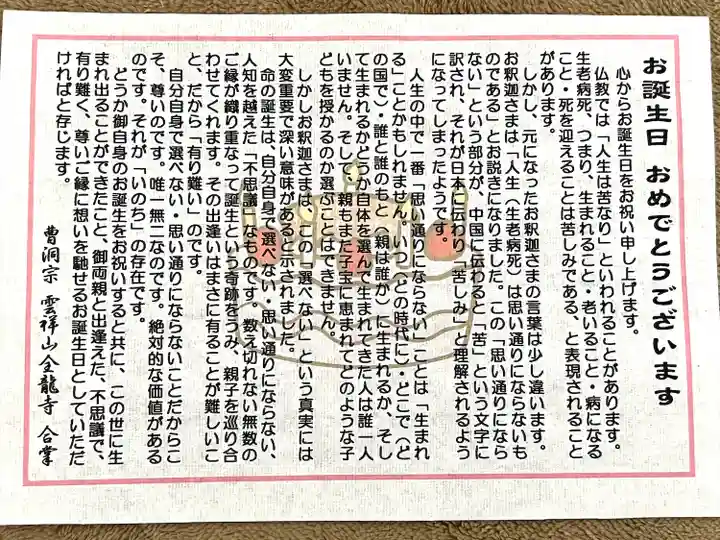 お誕生日 おめでとうございます
心からお誕生日をお祝い申し上げます。
仏教では「人生は苦なり」といわれることがあります。
生老病死、つまり、生まれること・老いること・病になる
こと・死を迎えることは苦しみである、と表現されること
があります。
しかし、元になったお釈迦さまの言葉は少し違います。
お釈迦さまは「人生（生老病死）は思い通りにならないも
のである」とお説きになりました。この「思い通りになら
ない」という部分が、中国に伝わると「苦」という文字に
訳され、それが日本に伝わり「苦しみ」と理解されるよう
になってしまったようです。
人生の中で一番「思い通りにならない」ことは「生まれ
る」ことかもしれません。いつ（どの時代に）・どこで（ど
の国で）・誰と誰のもと（親は誰か）に生まれるか、そし
て生まれるかどうか自体を選んで生まれてきた人は誰一人
いません。そして、親もまた子宝に恵まれてどのような子
どもを授かるのか選ぶことはできません。
しかしお釈迦さまは、この「選べない」という真実には
大変重要で深い意味があると示されました。
命の誕生は、自分自身で選べない・思い通りにならない、
人知を越えた「不思議」なものです。数え切れない無数の
ご縁が織り重なって誕生という奇跡をうみ、親子を巡り合
わせてくれます。その出逢いはまさに有ることが難しいこ
と、だから「有り難い」のです。
自分自身で選べない・思い通りにならないことだからこ
そ、尊いのです。唯一無二なのです。絶対的な価値がある
のです。それが「いのち」の存在です。
どうか御自身のお誕生をお祝いすると共に、この世に生
まれ出ることができたこと、御両親と出逢えた、不思議で、
有り難く、尊いご縁に想いを馳せるお誕生日としていただ
ければと存じます。
曹洞宗 雲祥山全龍寺 合掌